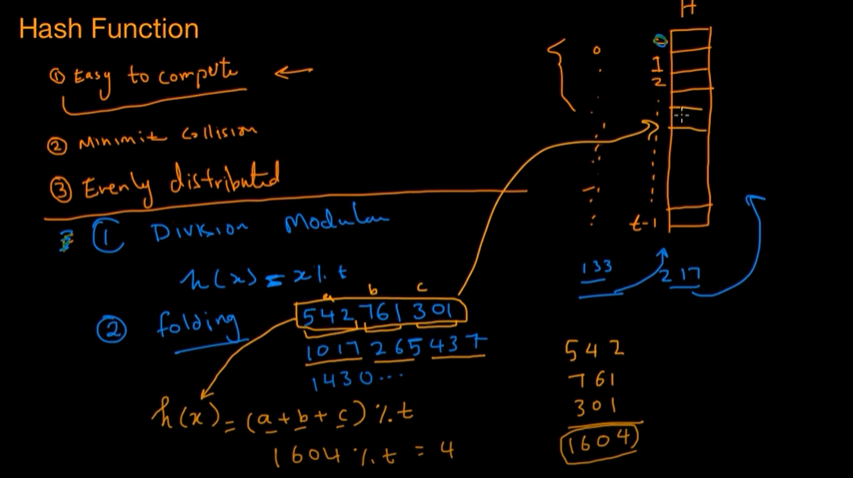 Hash Function
① Easy to compute ←
② Minimiz Collision
③ Evenly distributed
① Division Modular
h(x) = x % t
② folding
a b c
542 761 301
1017 265 437
1430...
h(x) = (a + b + c) % t
1604 % t = 4
H
0
0
1
2
t-1
133 217
542
761
301
1604